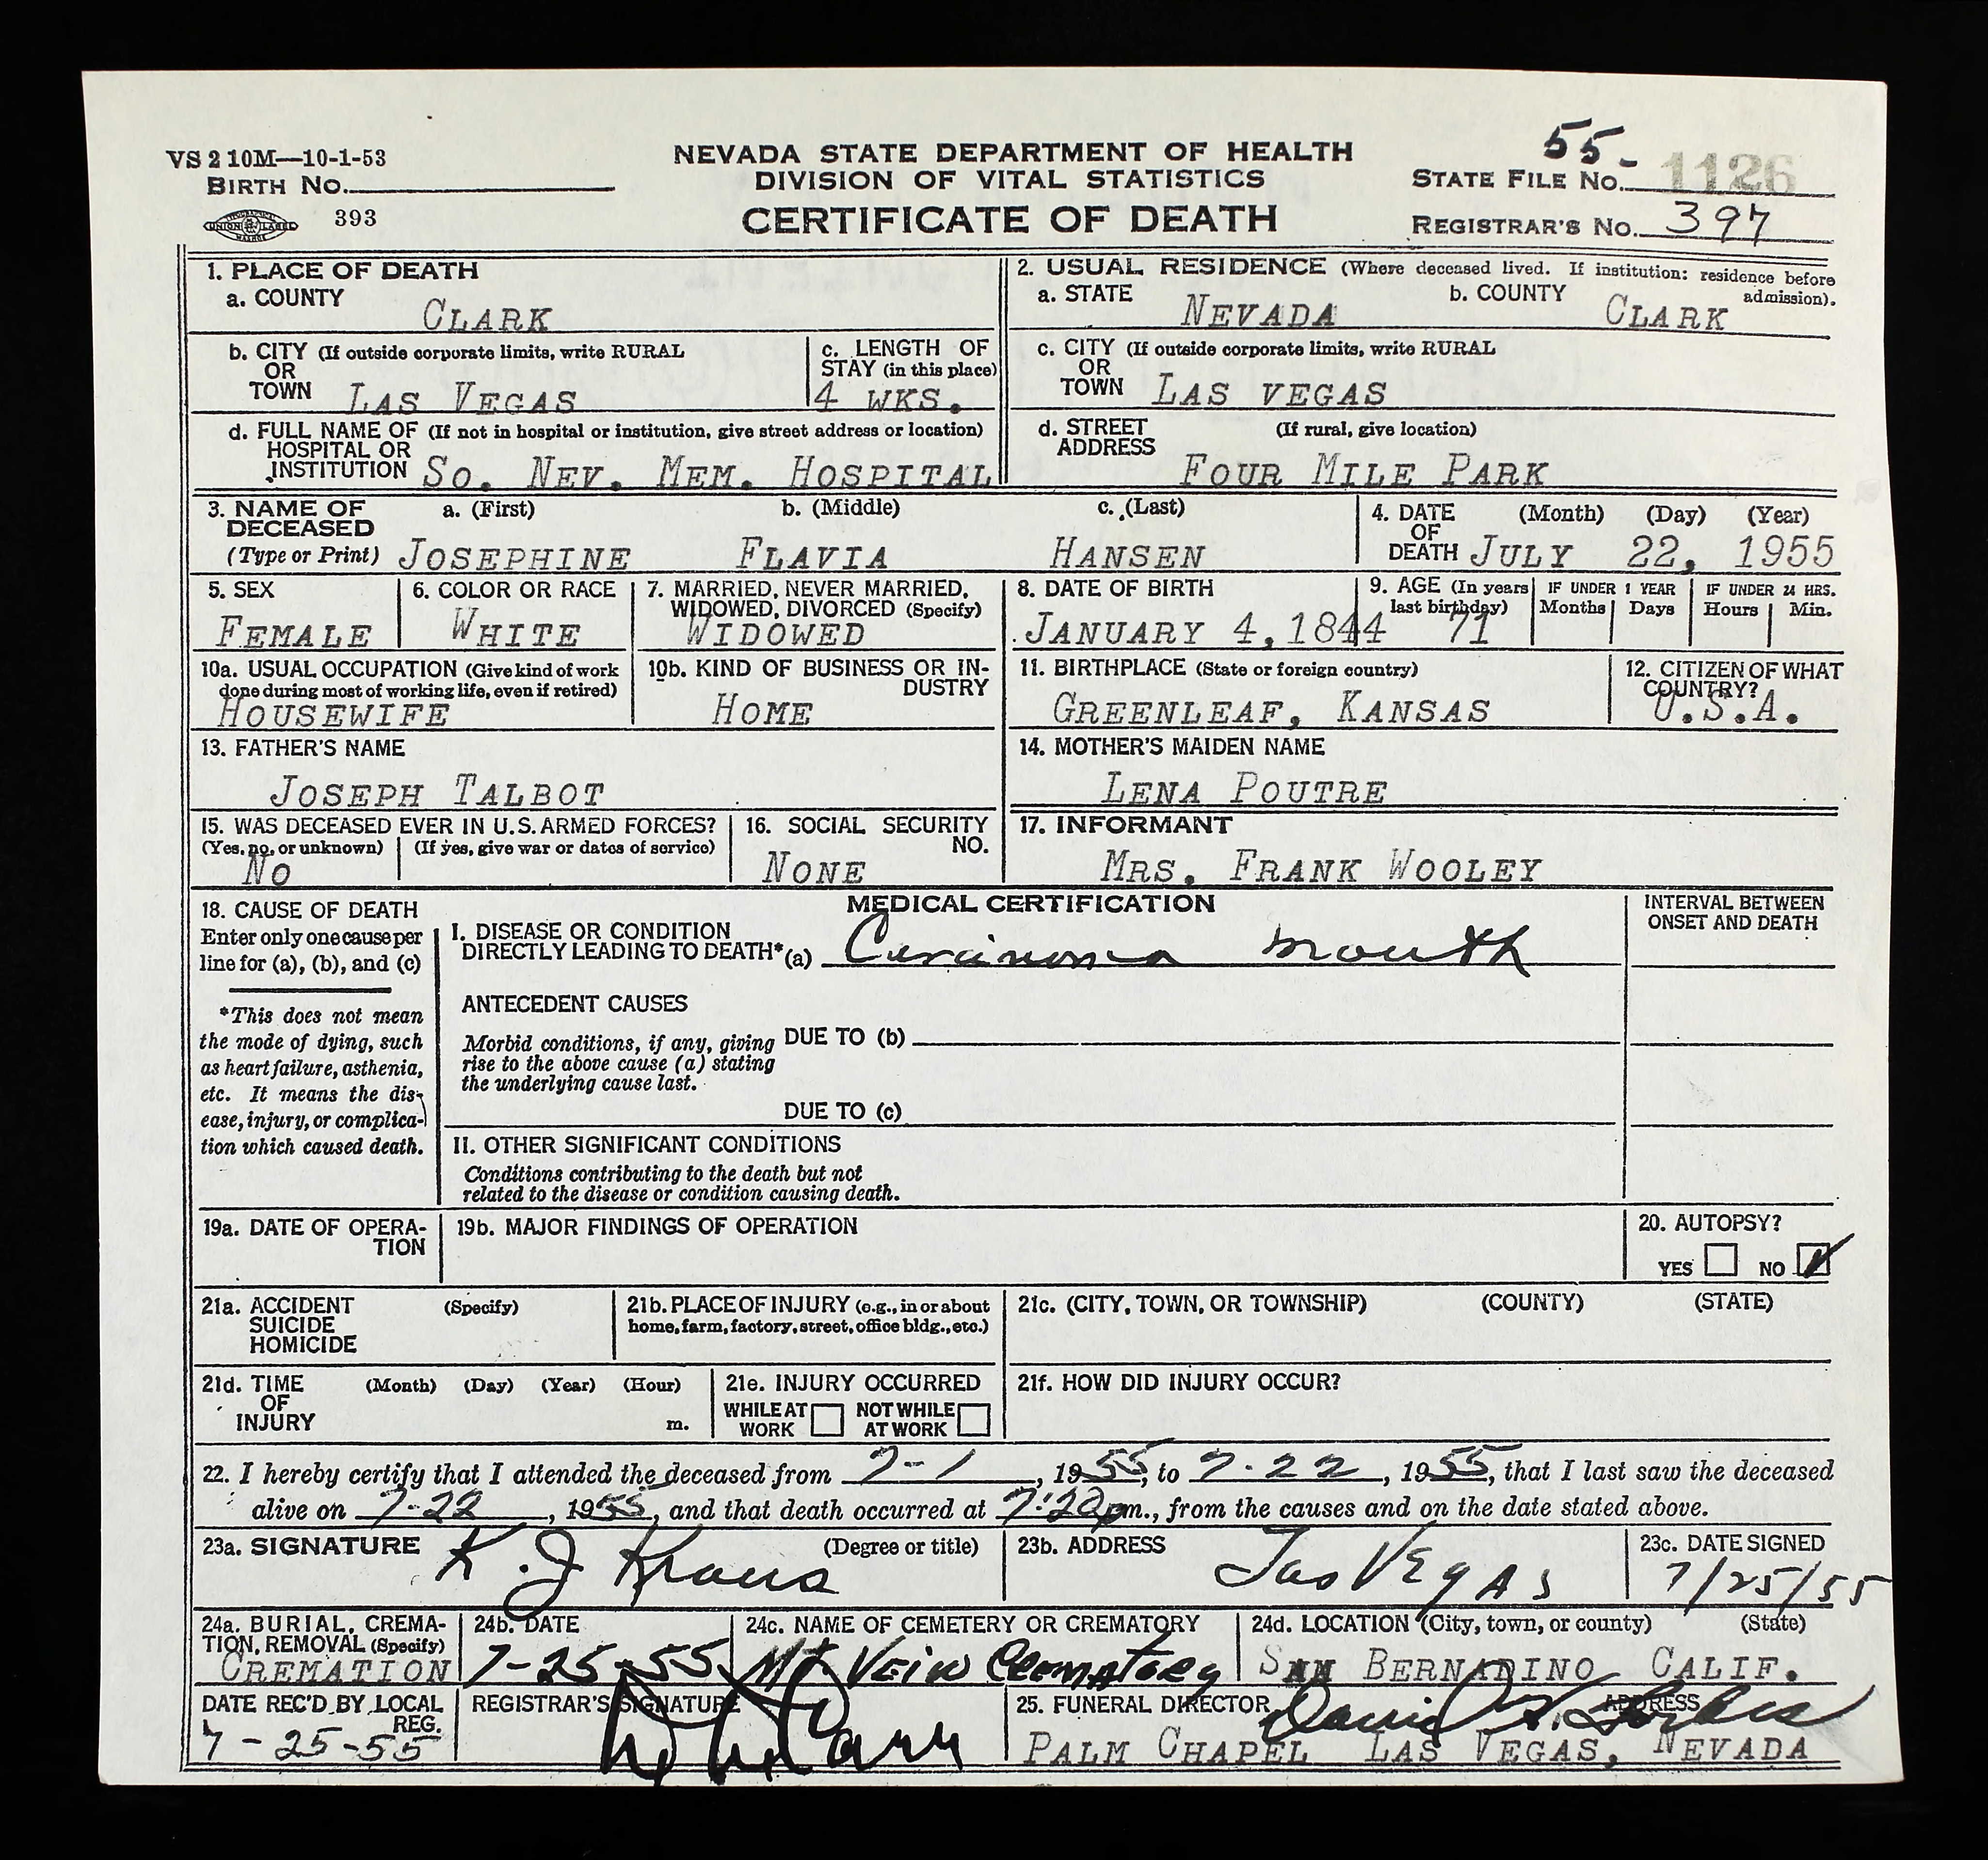 VS 2 10M—10-1-53
BIRTH No.
393
NEVADA STATE DEPARTMENT OF HEALTH
DIVISION OF VITAL STATISTICS
CERTIFICATE OF DEATH
55-
STATE FILE No. 1126
REGISTRAR'S No. 397
1. PLACE OF DEATH
a. COUNTY
CLARK
2. USUAL RESIDENCE (Where deceased lived. If institution: residence before admission).
a. STATE NEVADA b. COUNTY CLARK
b. CITY (If outside corporate limits, write RURAL
OR
TOWN LAS VEGAS
c. LENGTH OF
STAY (in this place)
4 WKS.
c. CITY (If outside corporate limits, write RURAL
OR
TOWN LAS VEGAS
d. FULL NAME OF (If not in hospital or institution, give street address or location)
HOSPITAL OR
INSTITUTION SO. NEV. MEM. HOSPITAL
d. STREET (If rural, give location)
ADDRESS
FOUR MILE PARK
3. NAME OF a. (First) b. (Middle) c. (Last)
DECEASED
(Type or Print) JOSEPHINE FLAVIA HANSEN
4. DATE (Month) (Day) (Year)
OF
DEATH JULY 22, 1955
5. SEX
FEMALE
6. COLOR OR RACE
WHITE
7. MARRIED, NEVER MARRIED,
WIDOWED, DIVORCED (Specify)
WIDOWED
8. DATE OF BIRTH
JANUARY 4, 1844
9. AGE (In years
last birthday)
71
IF UNDER 1 YEAR
Months Days
IF UNDER 24 HRS.
Hours Min.
10a. USUAL OCCUPATION (Give kind of work
done during most of working life, even if retired)
HOUSEWIFE
10b. KIND OF BUSINESS OR IN-
DUSTRY
HOME
11. BIRTHPLACE (State or foreign country)
GREENLEAF, KANSAS
12. CITIZEN OF WHAT
COUNTRY?
U.S.A.
13. FATHER'S NAME
JOSEPH TALBOT
14. MOTHER'S MAIDEN NAME
LENA POUTRE
15. WAS DECEASED EVER IN U.S. ARMED FORCES?
(Yes, no, or unknown) (If yes, give war or dates of service)
NO
16. SOCIAL SECURITY
NO.
NONE
17. INFORMANT
MRS. FRANK WOOLEY
18. CAUSE OF DEATH
Enter only one cause per
line for (a), (b), and (c)
*This does not mean
the mode of dying, such
as heart failure, asthenia,
etc. It means the dis-
ease, injury, or complica-
tion which caused death.
MEDICAL CERTIFICATION
I. DISEASE OR CONDITION
DIRECTLY LEADING TO DEATH* (a) Carcinoma mouth
ANTECEDENT CAUSES
Morbid conditions, if any, giving
rise to the above cause (a) stating
the underlying cause last.
DUE TO (b)
DUE TO (c)
II. OTHER SIGNIFICANT CONDITIONS
Conditions contributing to the death but not
related to the disease or condition causing death.
INTERVAL BETWEEN
ONSET AND DEATH
19a. DATE OF OPERA-
TION
19b. MAJOR FINDINGS OF OPERATION
20. AUTOPSY?
YES NO
21a. ACCIDENT (Specify)
SUICIDE
HOMICIDE
21b. PLACE OF INJURY (e.g., in or about
home, farm, factory, street, office bldg., etc.)
21c. (CITY, TOWN, OR TOWNSHIP) (COUNTY) (STATE)
21d. TIME (Month) (Day) (Year) (Hour)
OF
INJURY m.
21e. INJURY OCCURRED
WHILE AT NOT WHILE
WORK AT WORK
21f. HOW DID INJURY OCCUR?
22. I hereby certify that I attended the deceased from 7-1, 1955, to 7-22, 1955, that I last saw the deceased
alive on 7-22, 1955, and that death occurred at 7:20pm., from the causes and on the date stated above.
23a. SIGNATURE (Degree or title)
K. J. Kraus
23b. ADDRESS
Las Vegas
23c. DATE SIGNED
7/25/55
24a. BURIAL, CREMA-
TION, REMOVAL (Specify)
CREMATION
24b. DATE
7-25-55
24c. NAME OF CEMETERY OR CREMATORY
Mt. Veiw Crematory
24d. LOCATION (City, town, or county) (State)
SAN BERNADINO CALIF.
DATE REC'D BY LOCAL
REG.
7-25-55
REGISTRAR'S SIGNATURE
25. FUNERAL DIRECTOR ADDRESS
PALM CHAPEL LAS VEGAS, NEVADA